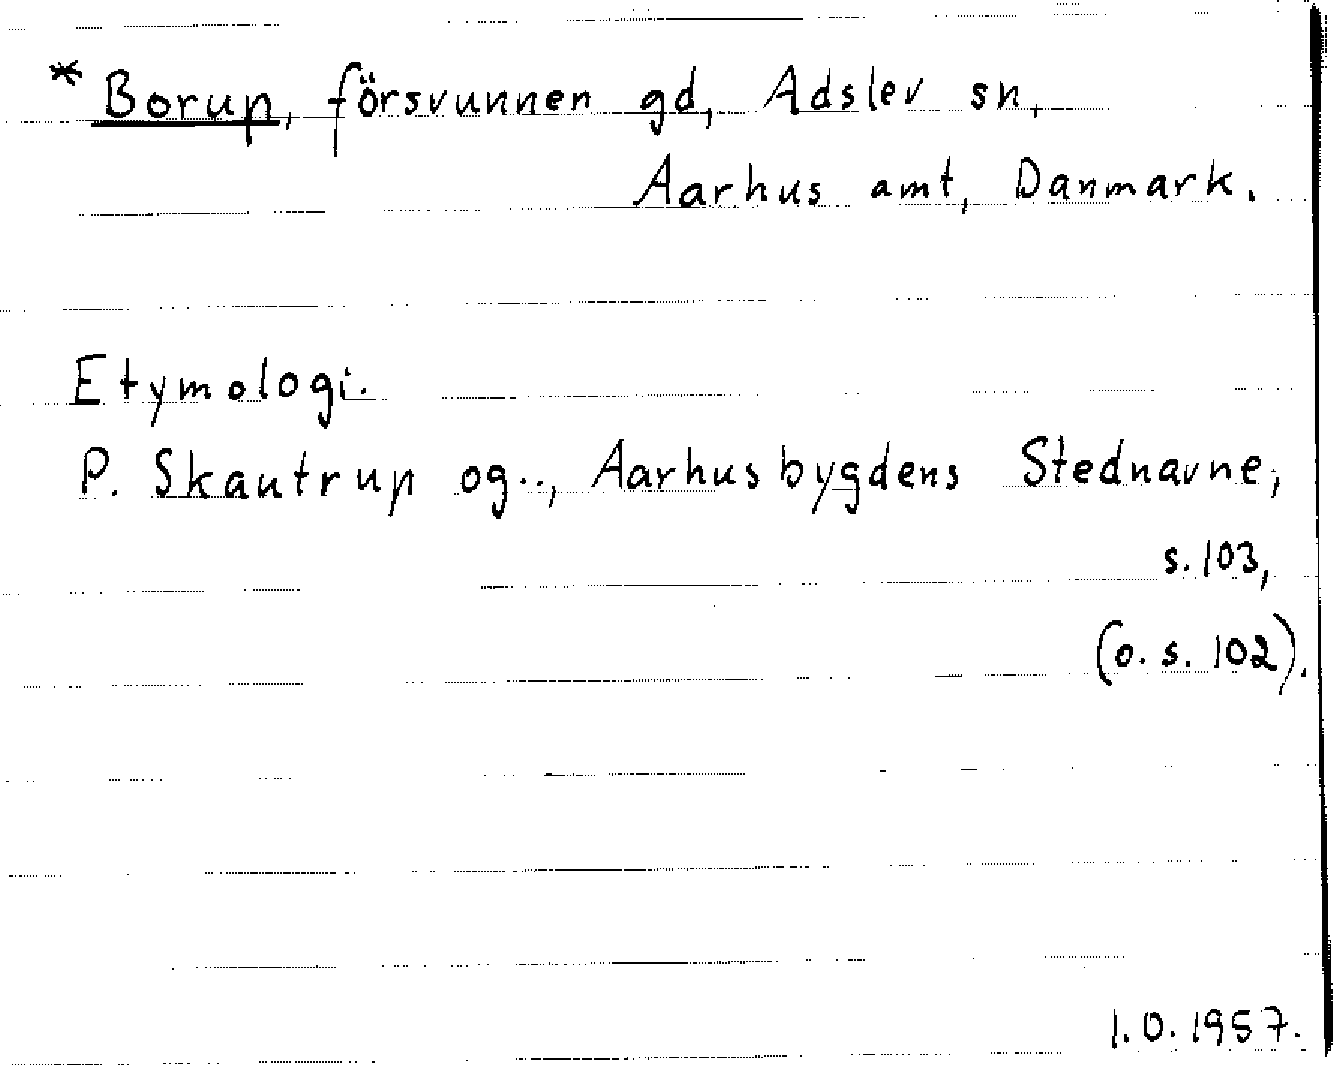 * Borup, försvunnen gd, Adslev sn,
Aarhus amt, Danmark.
Etymologi.
P. Skautrup og.., Aarhusbygdens Stednavne,
s. 103,
(o. s. 102).
1.0.1957.